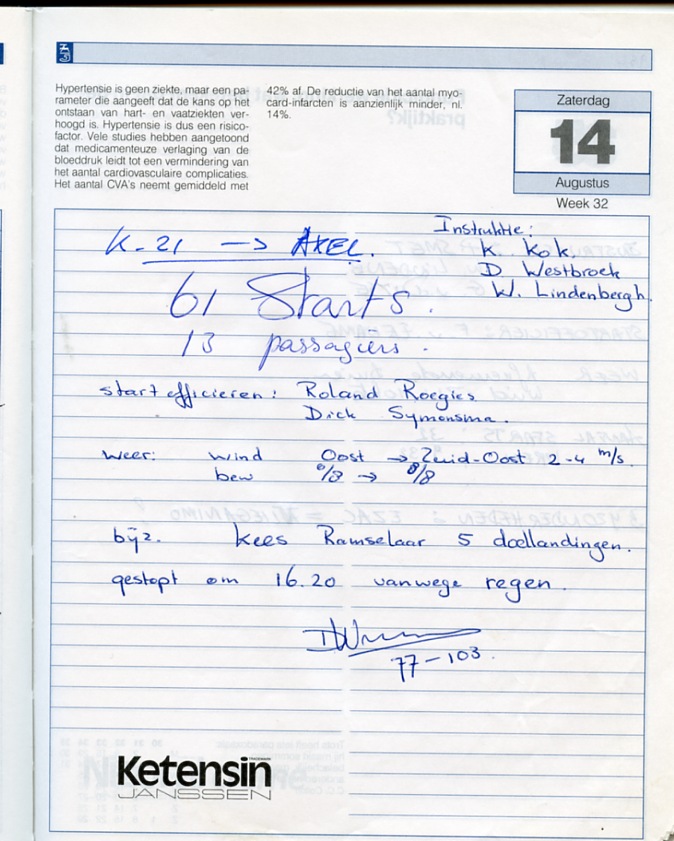 Hypertensie is geen ziekte, maar een pa-
rameter die aangeeft dat de kans op het
ontstaan van hart- en vaatziekten ver-
hoogd is. Hypertensie is dus een risico-
factor. Vele studies hebben aangetoond
dat medicamenteuze verlaging van de
bloeddruk leidt tot een vermindering van
het aantal cardiovasculaire complicaties.
Het aantal CVA's neemt gemiddeld met
42% af. De reductie van het aantal myo-
card-infarcten is aanzienlijk minder, nl.
14%.
Zaterdag
14
Augustus
Week 32
Instruktie:
K. Kok.
D Westbroek
W. Lindenbergh.
K-21 → AXEL.
61 Starts.
13 passagiers.
startofficieren: Roland Roegies
Dick Symonsma.
weer: wind Oost → Zuid-Oost 2-4 m/s.
bew 0/8 → 8/8
bijz. Kees Ramselaar 5 doellandingen.
gestopt om 16.20 vanwege regen.
77-103.
Ketensin
JANSSEN